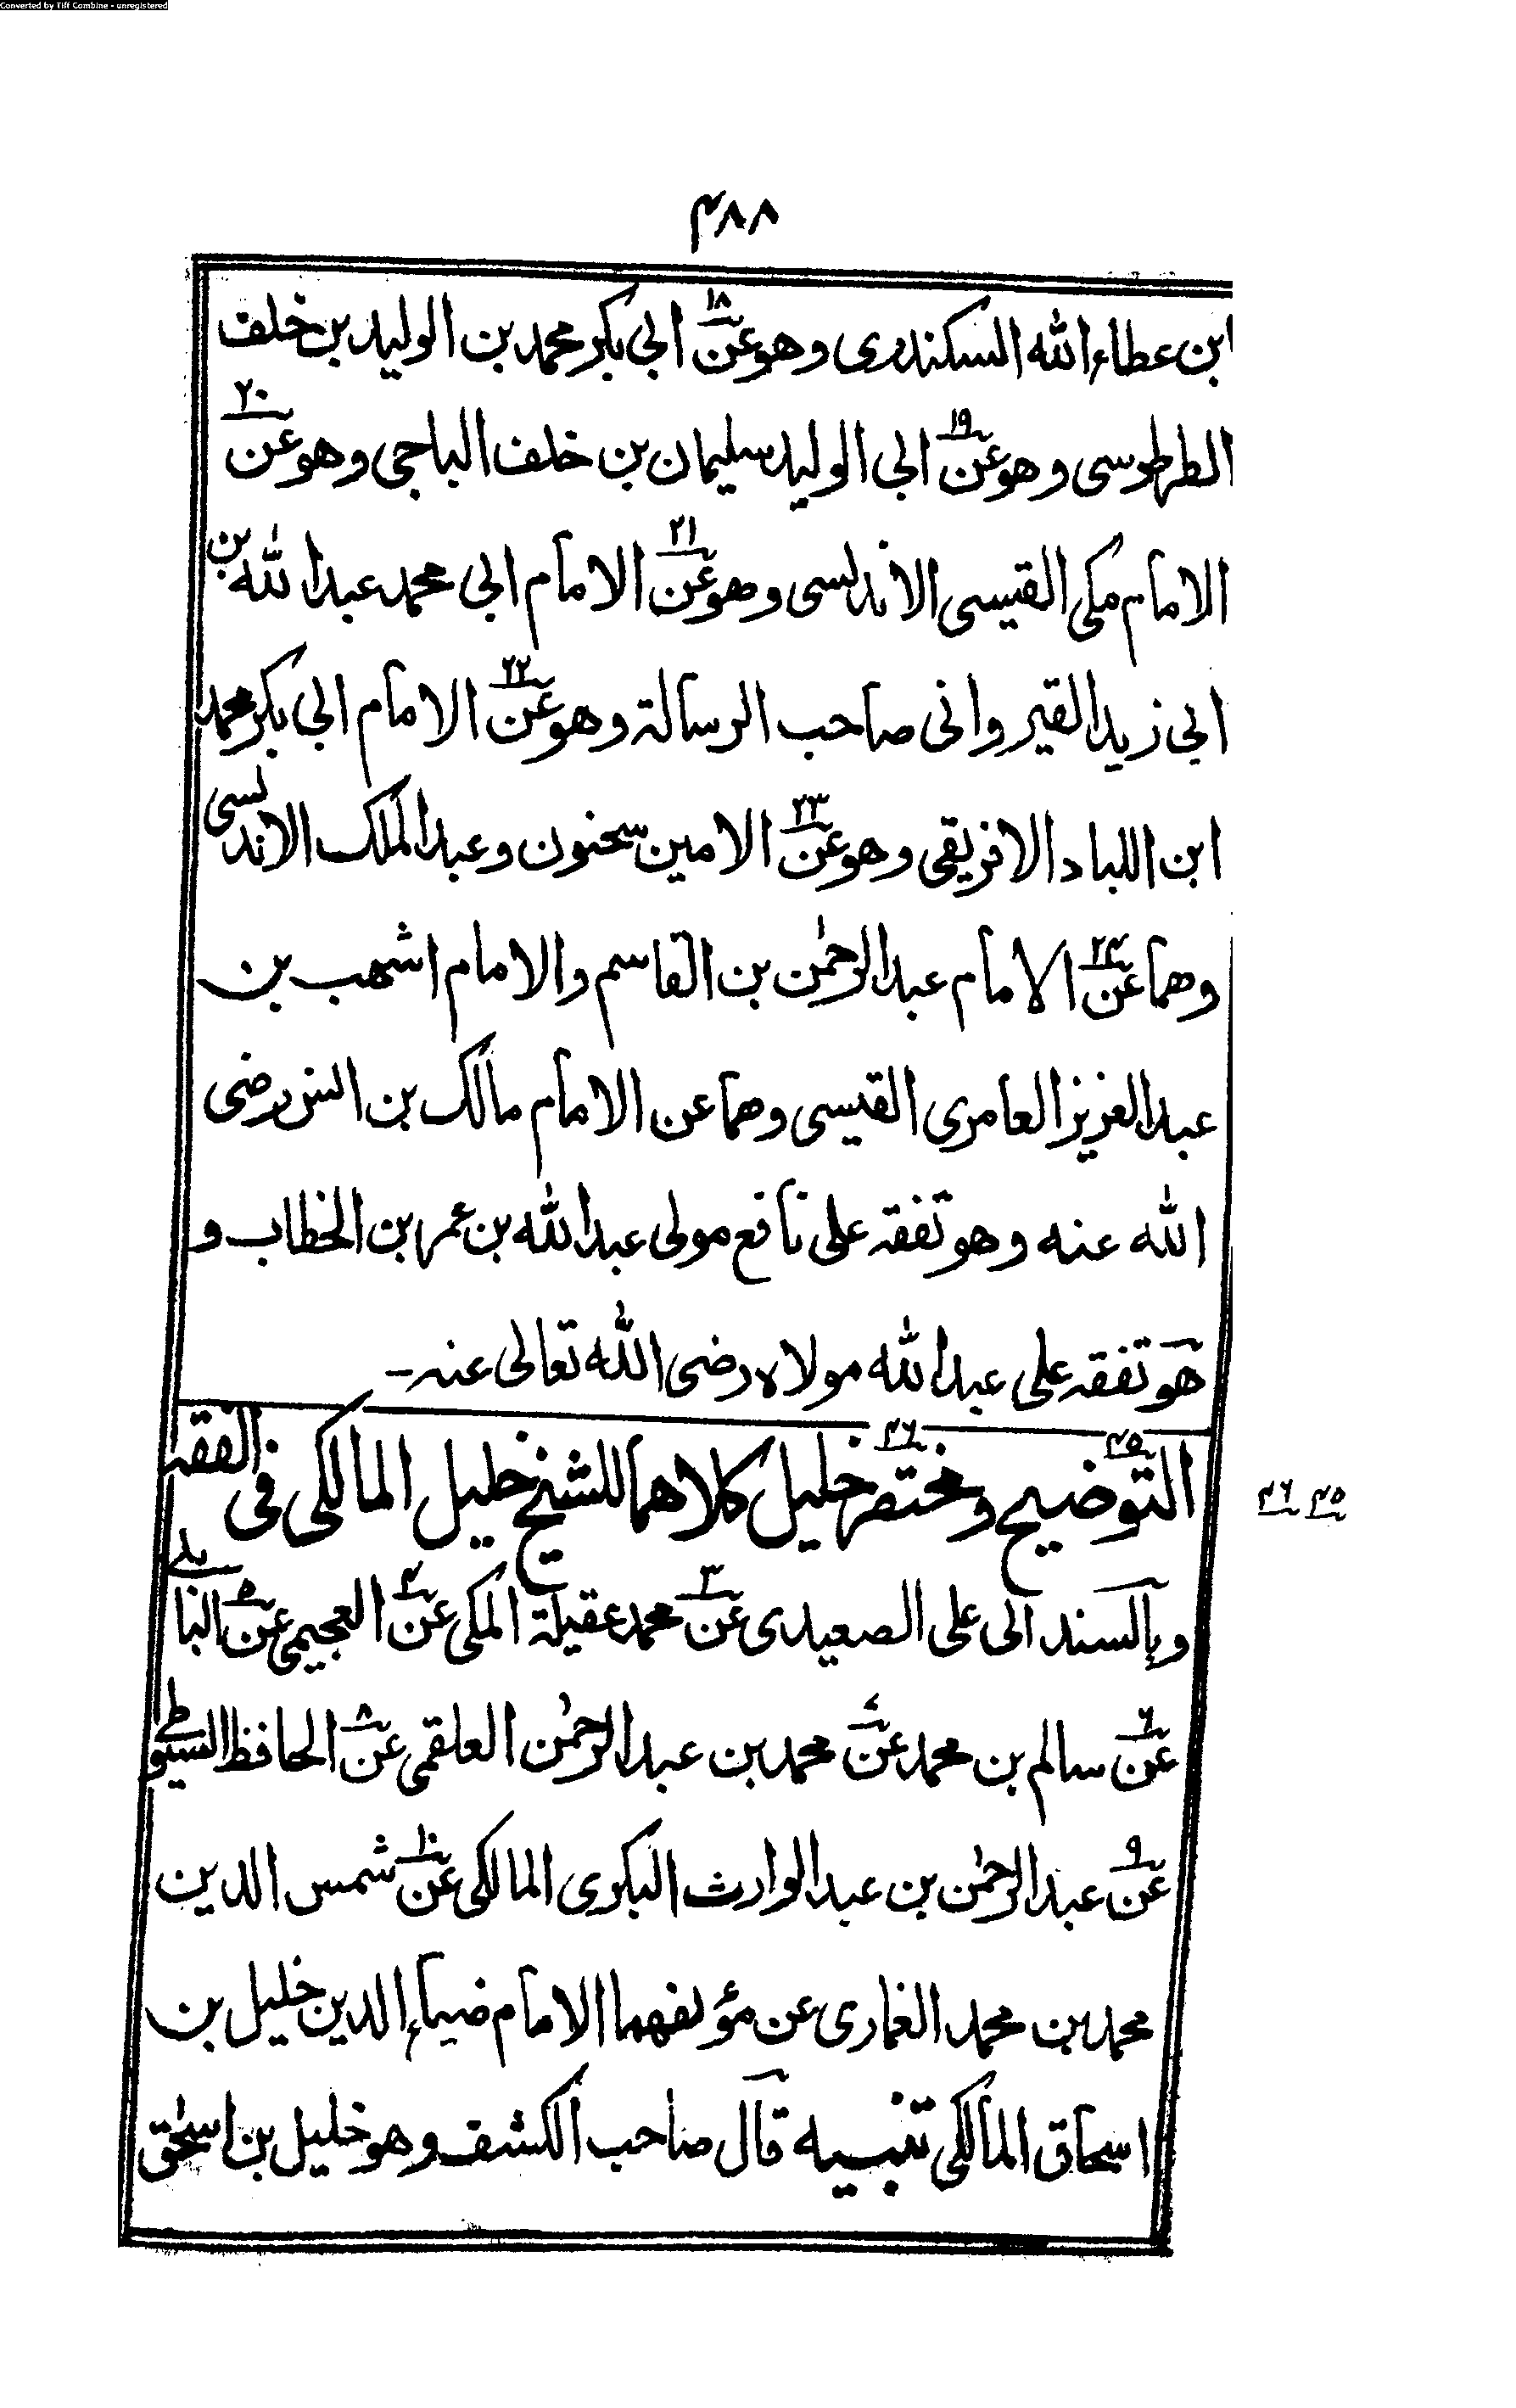 Converted by Tiff Combine - unregistered
۴۸۸
ابن عطاء الله السكندرى وهو عن ١٨ ابى بكر محمد بن الوليد بن خلف
الطرطوسى وهو عن ١٩ ابى الوليد سليمان بن خلف الباجى وهو عن ٢٠
الامام مكى القيسى الاندلسى وهو عن ٢١ الامام ابى محمد عبد الله بن
ابى زيد القيروانى صاحب الرسالة وهو عن ٢٢ الامام ابى بكر محمد
ابن اللباد الافريقى وهو عن ٢٣ الامين سحنون وعبد الملك الاندلسى
وهما عن ۲۴ الامام عبد الرحمٰن بن القاسم والامام اشهب بن
عبد العزيز العامرى القيسى وهما عن الامام مالك بن انس رضى
الله عنه وهو تفقه على نافع مولى عبد الله بن عمر بن الخطاب و
هو تفقه على عبد الله مولاه رضى الله تعالى عنه ـ
التوضيح ۴۵ ومختصر خليل ۴۶ كلاهما للشيخ خليل المالكى فى الفقه
۴۵ ۴۶
وبالسند الى على الصعيدى عن ٣ محمد عقيلة المكى عن ۴ العجيمى عن ۵ البابلى
عن ۶ سالم بن محمد عن ٧ محمد بن عبد الرحمٰن العلقمى عن ٨ الحافظ السيوطى
عن ٩ عبد الرحمٰن بن عبد الوارث البكرى المالكى عن ١٠ شمس الدين
محمد بن محمد الغمارى عن مؤلفهما الامام ضياء الدين خليل بن
اسحاق المالكى تنبيه قال صاحب الكشف وهو خليل بن اسحٰق